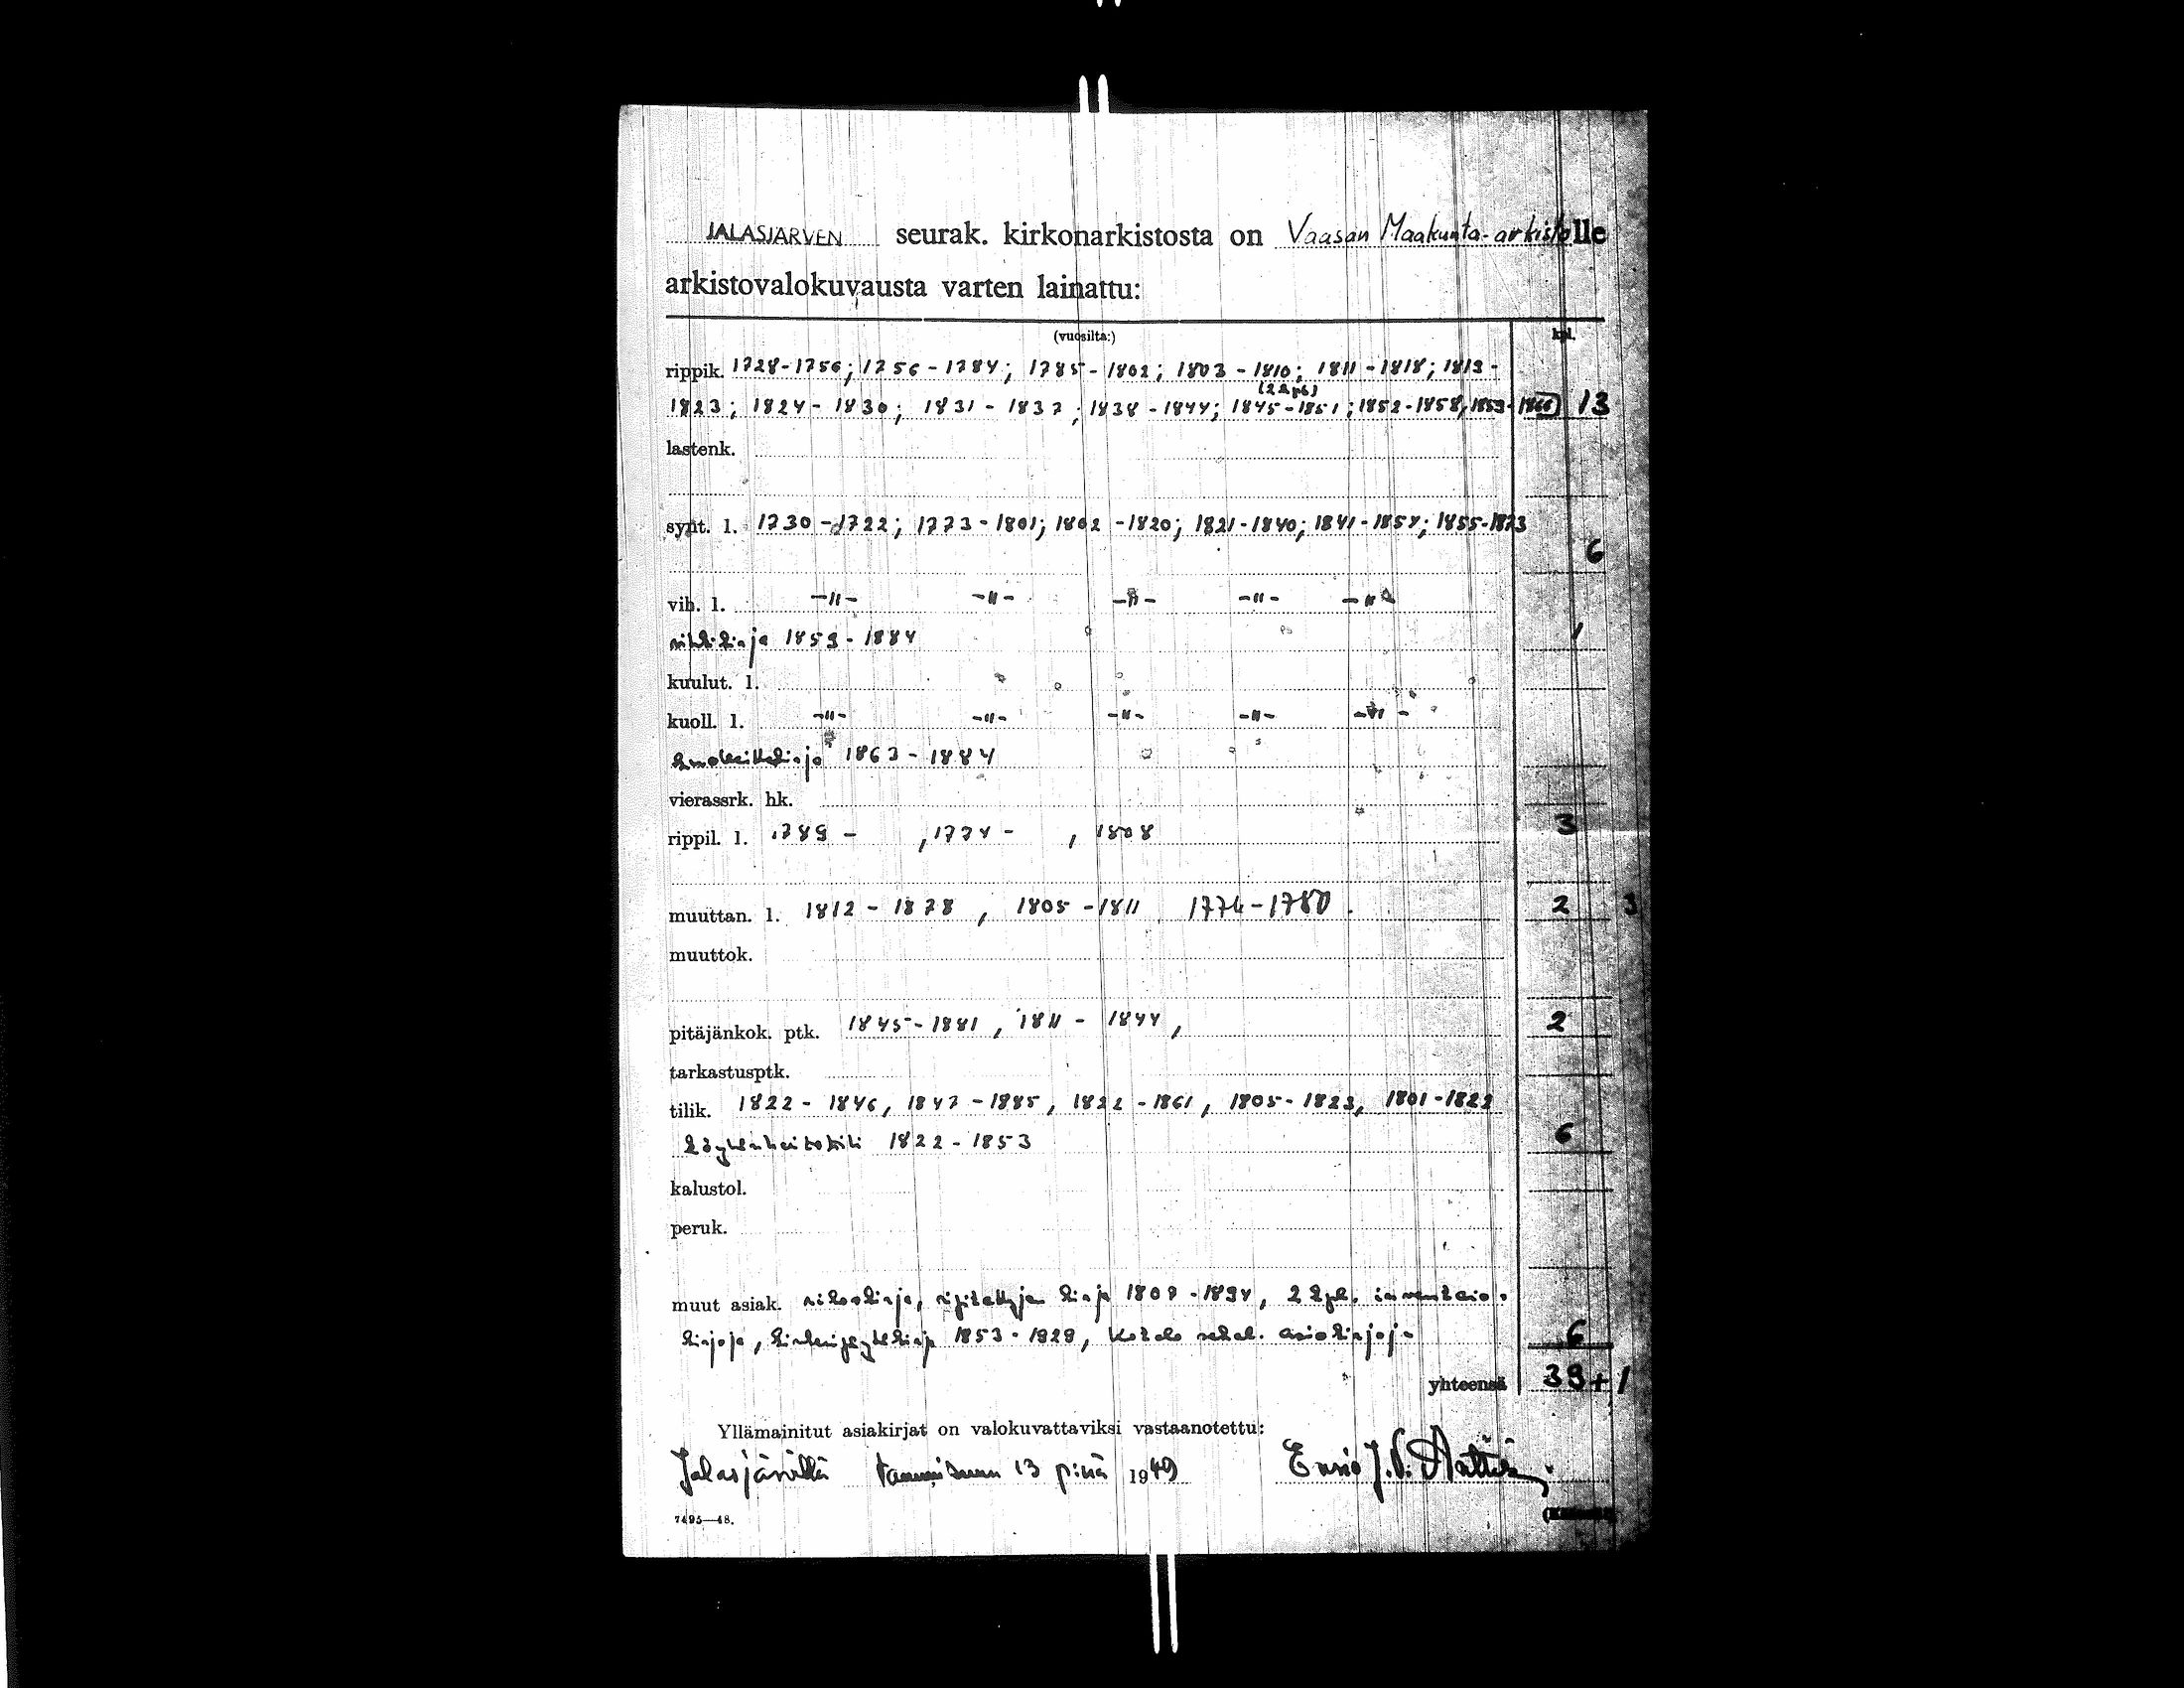 JALASJÄRVEN seurak. kirkonarkistosta on Vaasan Maakunta-arkistolle
arkistovalokuvausta varten lainattu:
(vuosilta:) kpl.
rippik. 1728-1756; 1756-1784; 1785-1802; 1803-1810; 1811-1818; 1819-
(2 kpl)
1823; 1824-1830; 1831-1837; 1838-1844; 1845-1851; 1852-1858, 1859-1865 13
lastenk.
synt. l. 1730-1722; 1773-1801; 1802-1820; 1821-1840; 1841-1854; 1855-1873
6
vih. l. -"- -"- -"- -"- -"-
vihkikirja 1859-1884 1
kuulut. l.
kuoll. l. -"- -"- -"- -"- -"-
1863-1884
vierassrk. hk.
rippil. l. 1789 - , 1774 - , 1808 3
muuttan. l. 1812-1878, 1805-1811 1774-1780. 2 3
muuttok.
pitäjänkok. ptk. 1845-1881, 1811-1844, 2
tarkastusptk.
tilik. 1822-1846, 1847-1885, 1822-1861, 1805-1823, 1801-1822
köyhäinhoitotili 1822-1853 6
kalustol.
peruk.
muut asiak. rikoskirja, ripitettyjen kirja 1808-1894, 2 kpl. inventaio-
kirjoja, 1853-1929, asiakirjoja 6
yhteensä 39+1
Yllämainitut asiakirjat on valokuvattaviksi vastaanotettu:
Jalasjärvellä tammikuun 13 p:nä 1949 J.
7495—48.